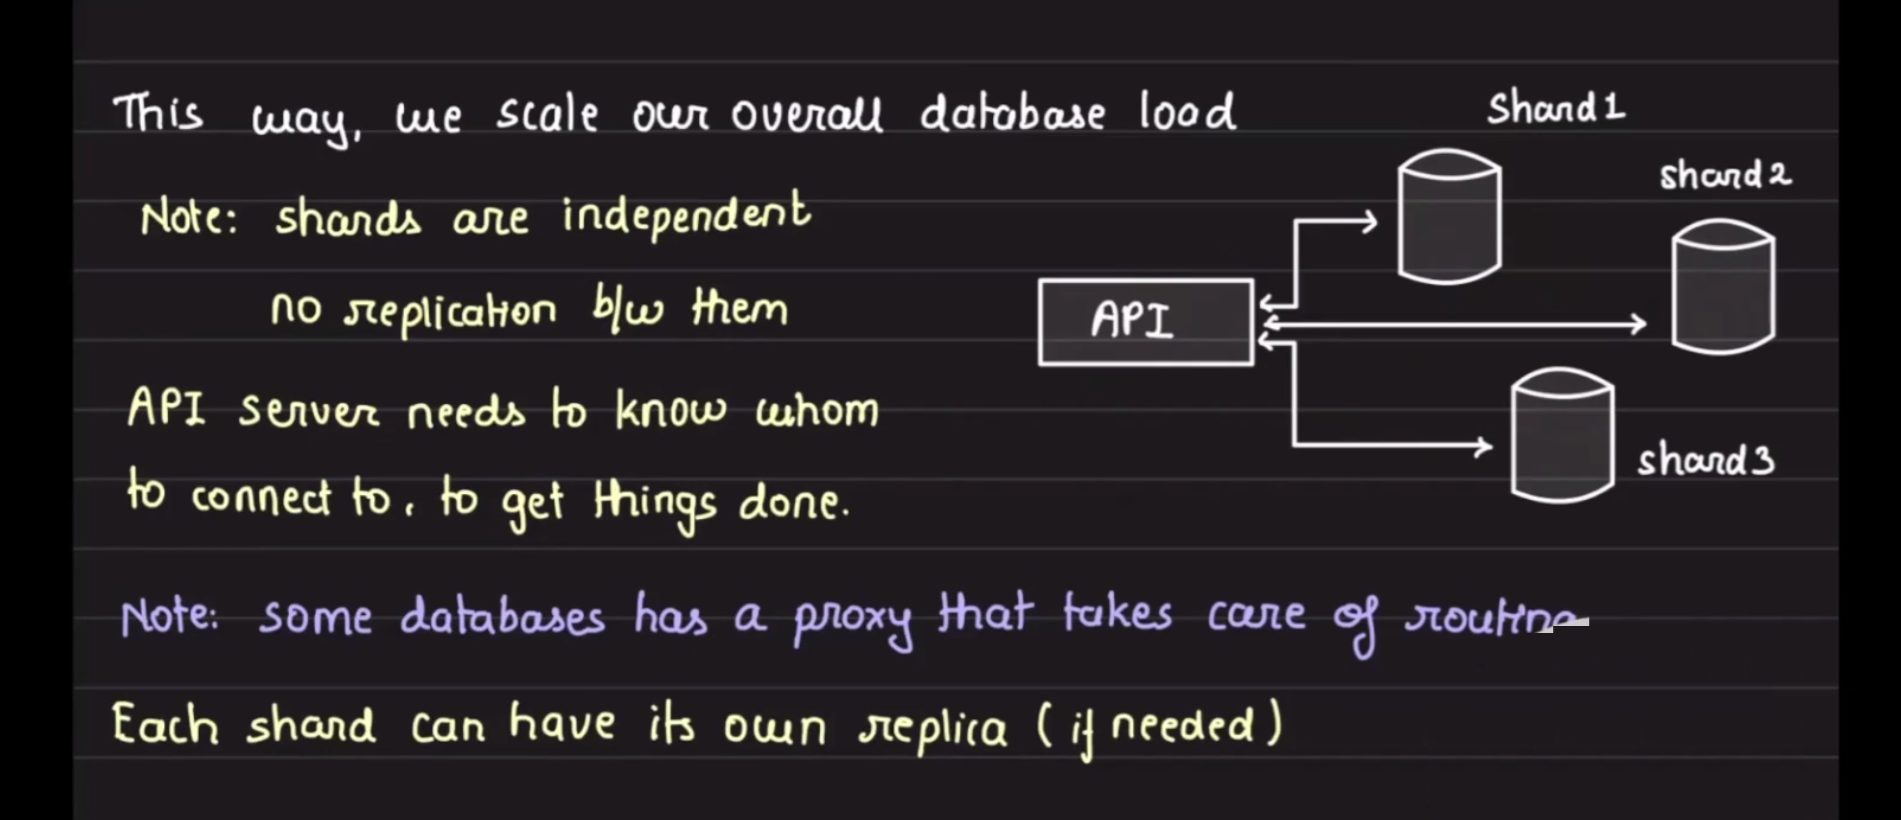 This way, we scale our overall database load
Shard 1
shard 2
Note: shards are independent
no replication b/w them
API
API server needs to know whom
to connect to, to get things done.
shard 3
Note: some databases has a proxy that takes care of routing
Each shard can have its own replica (if needed)